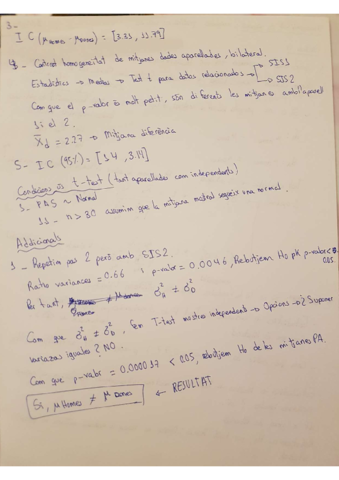 3-
I C (μ homes - μ dones) = [3.33, 11.79]
4 - Contrast homogeneitat de mitjanes dades aparellades, bilateral.
Estadístics → Medias → Test t para datos relacionados → SIS1
SIS2
Com que el p-valor és molt petit, són diferents les mitjanes amb l'aparell
1 i el 2.
X̄d = 2.27 → Mitjana diferència
5 - I C (95%) = [1.4, 3.14]
Condicions t-test (tant aparellades com independents)
1 - PAS ~ Normal
11 - n > 30 assumim que la mitjana mostral segueix una normal.
Addicionals
1 - Repetim pas 2 però amb SIS2.
Ratio variances = 0.66 p-valor = 0.0046, Rebutjem Ho pk p-valor < 0.05.
Per tant, σ²H ≠ σ²D
Com que σ²H ≠ σ²D, fem T-test mostres independents → Opcions → ¿Suponer
varianzas iguales? NO.
Com que p-valor = 0.000017 < 0.05, rebutjem Ho de les mitjanes PA.
μ Homes ≠ μ Dones ← RESULTAT